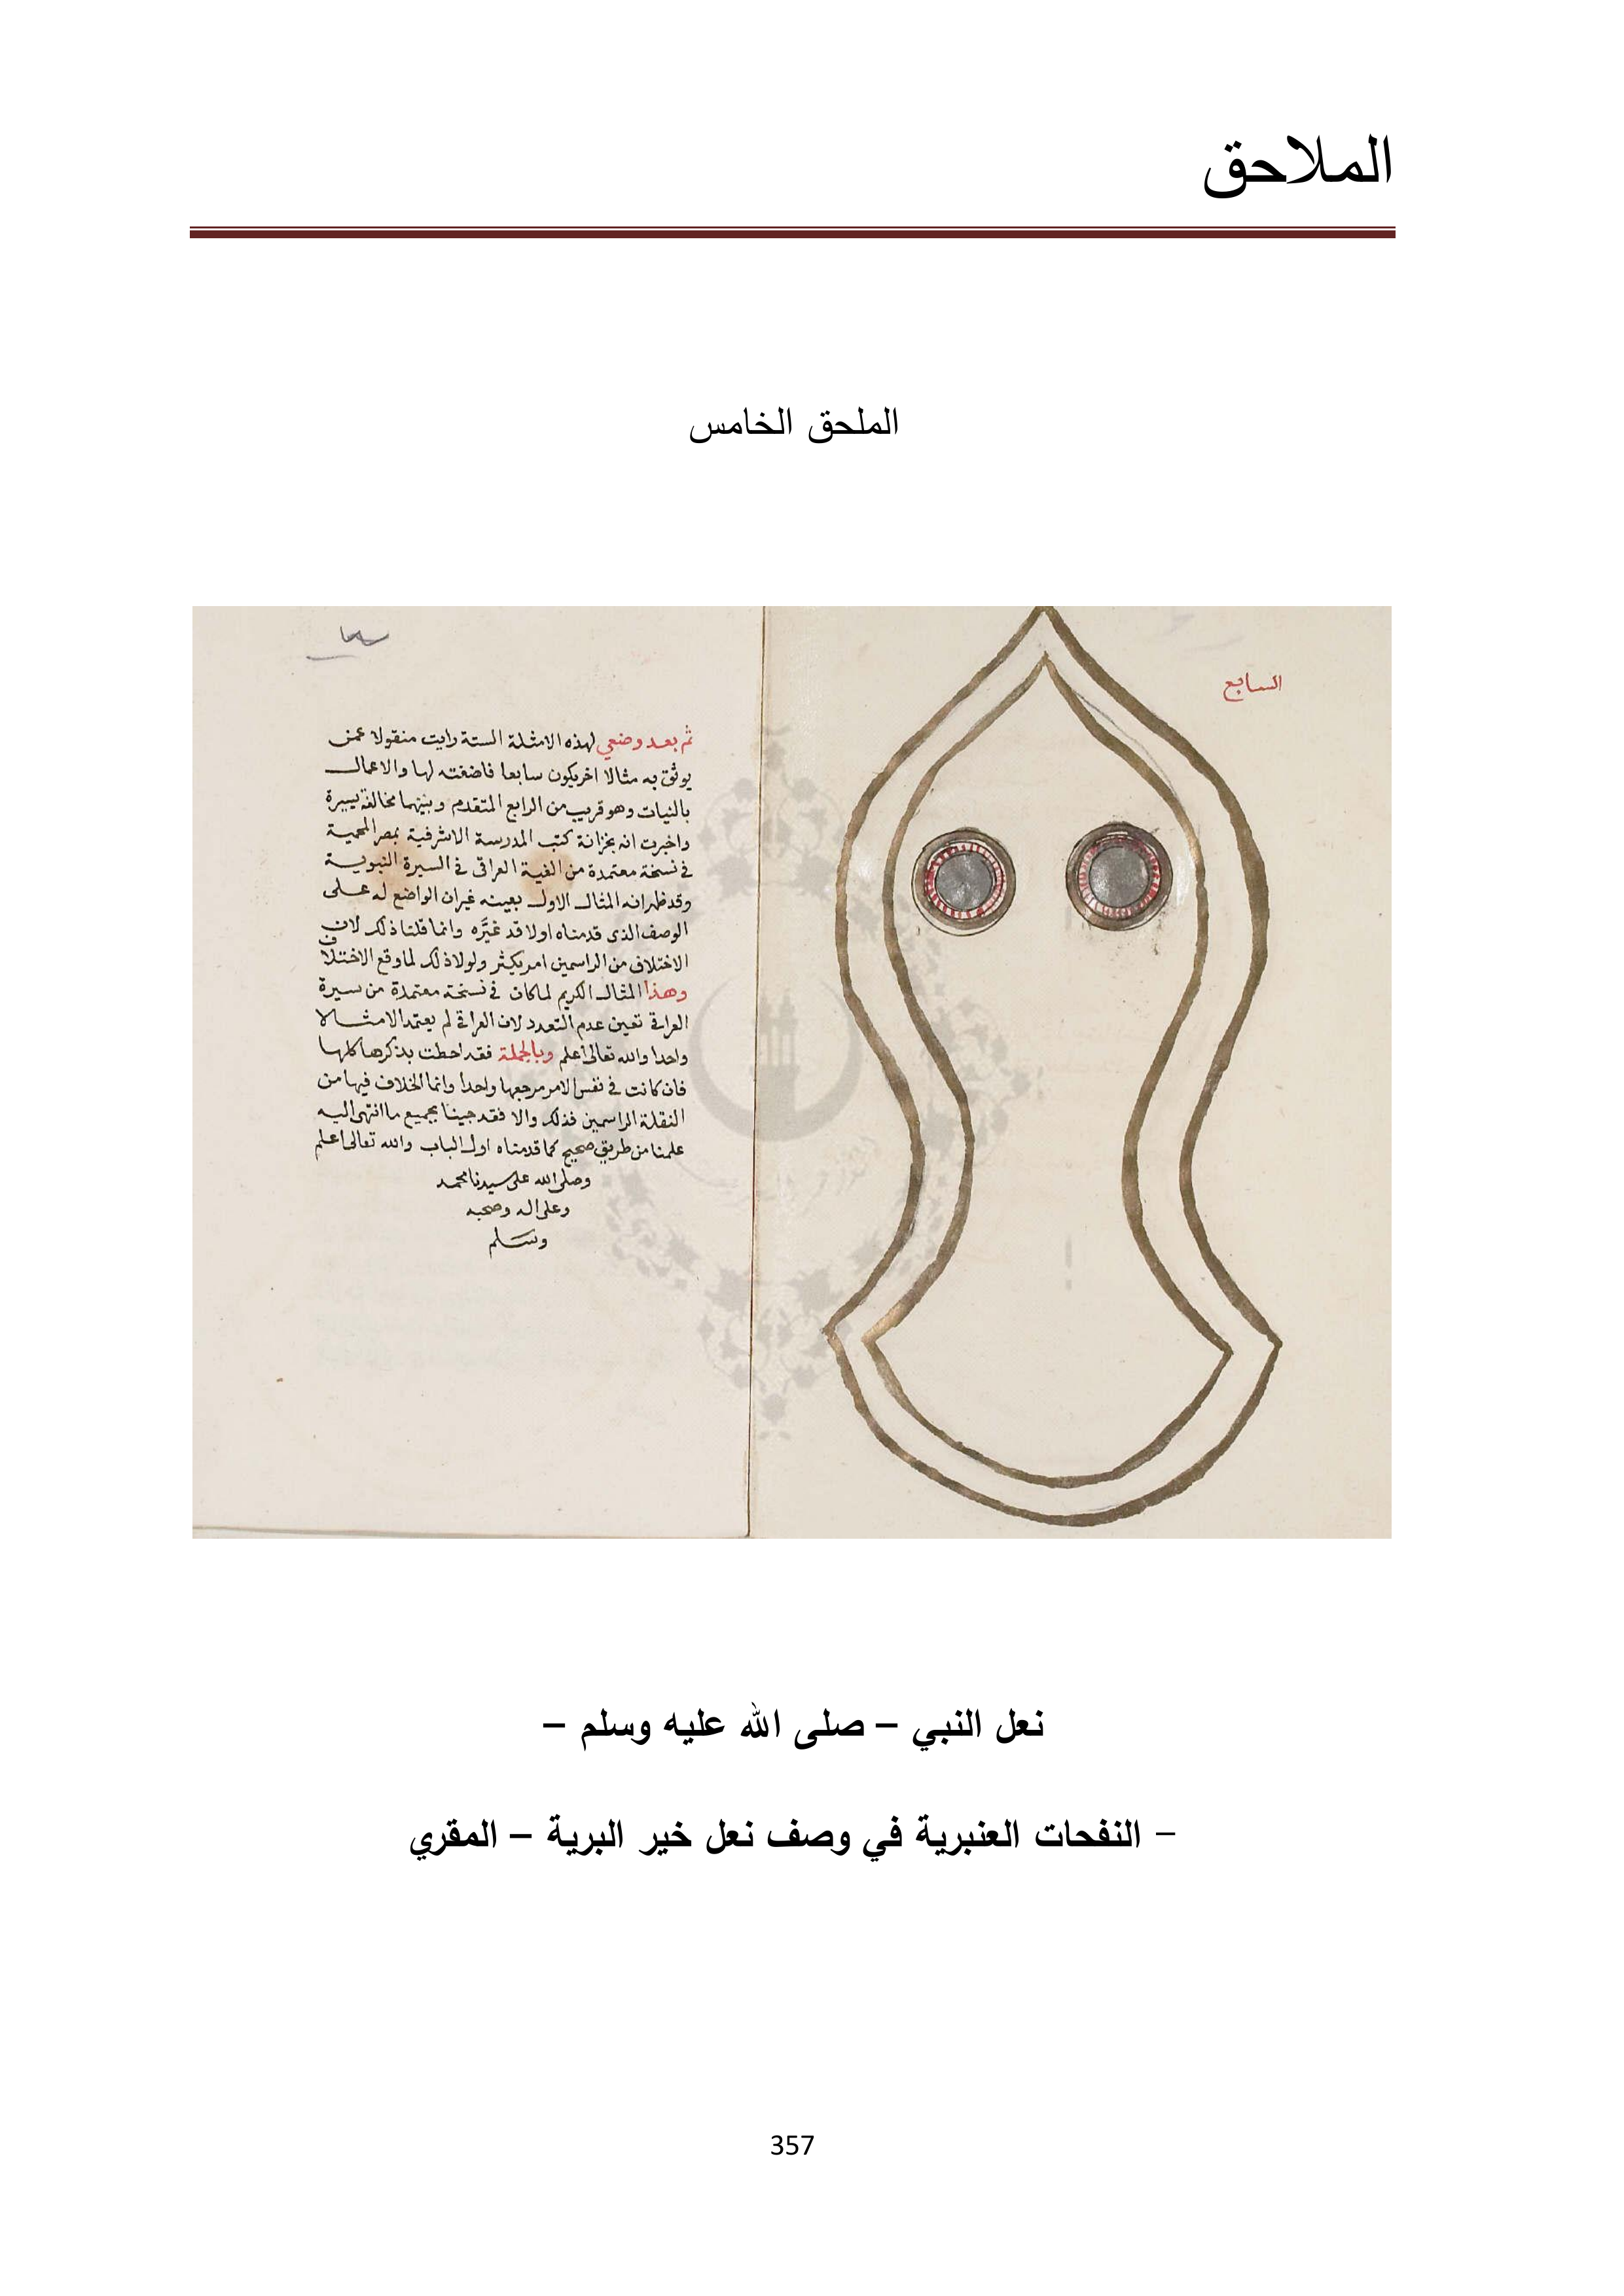 الملاحق
الملحق الخامس
السابع
ثم بعد وضعي لهذه الامثلة الستة رايت منقولا عمن
يوثق به مثالا اخر يكون سابعا فاضفته لها والاعمال
بالنيات وهو قريب من الرابع المتقدم وبينهما مخالفة يسيرة
واخبرت انه بخزانة كتب المدرسة الاشرفية بمصر المحمية
في نسخة معتمدة من الفية العراقي في السيرة النبوية
وقد ظهر انه المثال الاول بعينه غير ان الواضع له على
الوصف الذي قدمناه اولا قد غيَّره وانما قلنا ذلك لان
الاختلاف من الراسمين امر يكثر ولولا ذلك لما وقع الاختلاف
وهذا المثال الكريم لما كان في نسخة معتمدة من سيرة
العراقي تعين عدم التعدد لان العراقي لم يعتمد الا مثالا
واحدا والله تعالى اعلم وبالجملة فقد احطت بذكرها كلها
فان كانت في نفس الامر مرجعها واحدا وانما الخلاف فيها من
النقلة الراسمين فذلك والا فقد جينا بجميع ما انتهى اليه
علمنا من طريق صحيح كما قدمناه اول الباب والله تعالى اعلم
وصلى الله على سيدنا محمد
وعلى اله وصحبه
وسلم
نعل النبي – صلى الله عليه وسلم –
– النفحات العنبرية في وصف نعل خير البرية – المقري
357